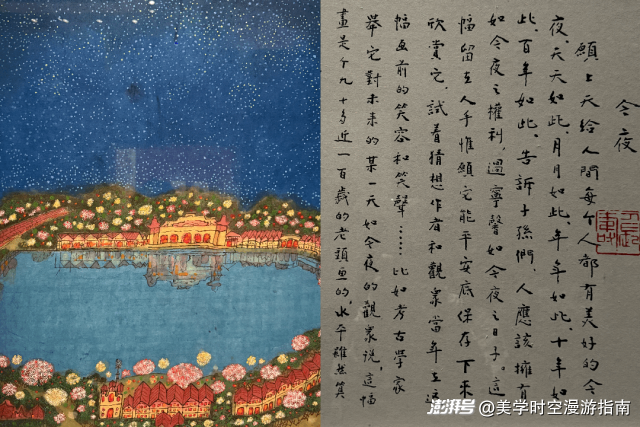 今夜
願上天給人間每个人都有美好的今
夜、天天如此、月月如此、年年如此、十年如
此、百年如此、告訴子孫們、人應該擁有
如今夜之權利、過寧馨如今夜之日子。這
幅留在人手惟願它能平安底保存下來
欣賞它、試着猜想作者和觀眾當年在這
幅画前的笑容和笑聲……比如考古學家
舉它對未來的某一天如今夜的觀眾說、這幅
畫是个九十多近一百歲的老頭画的、水平雖然算
澎湃号@美学时空漫游指南